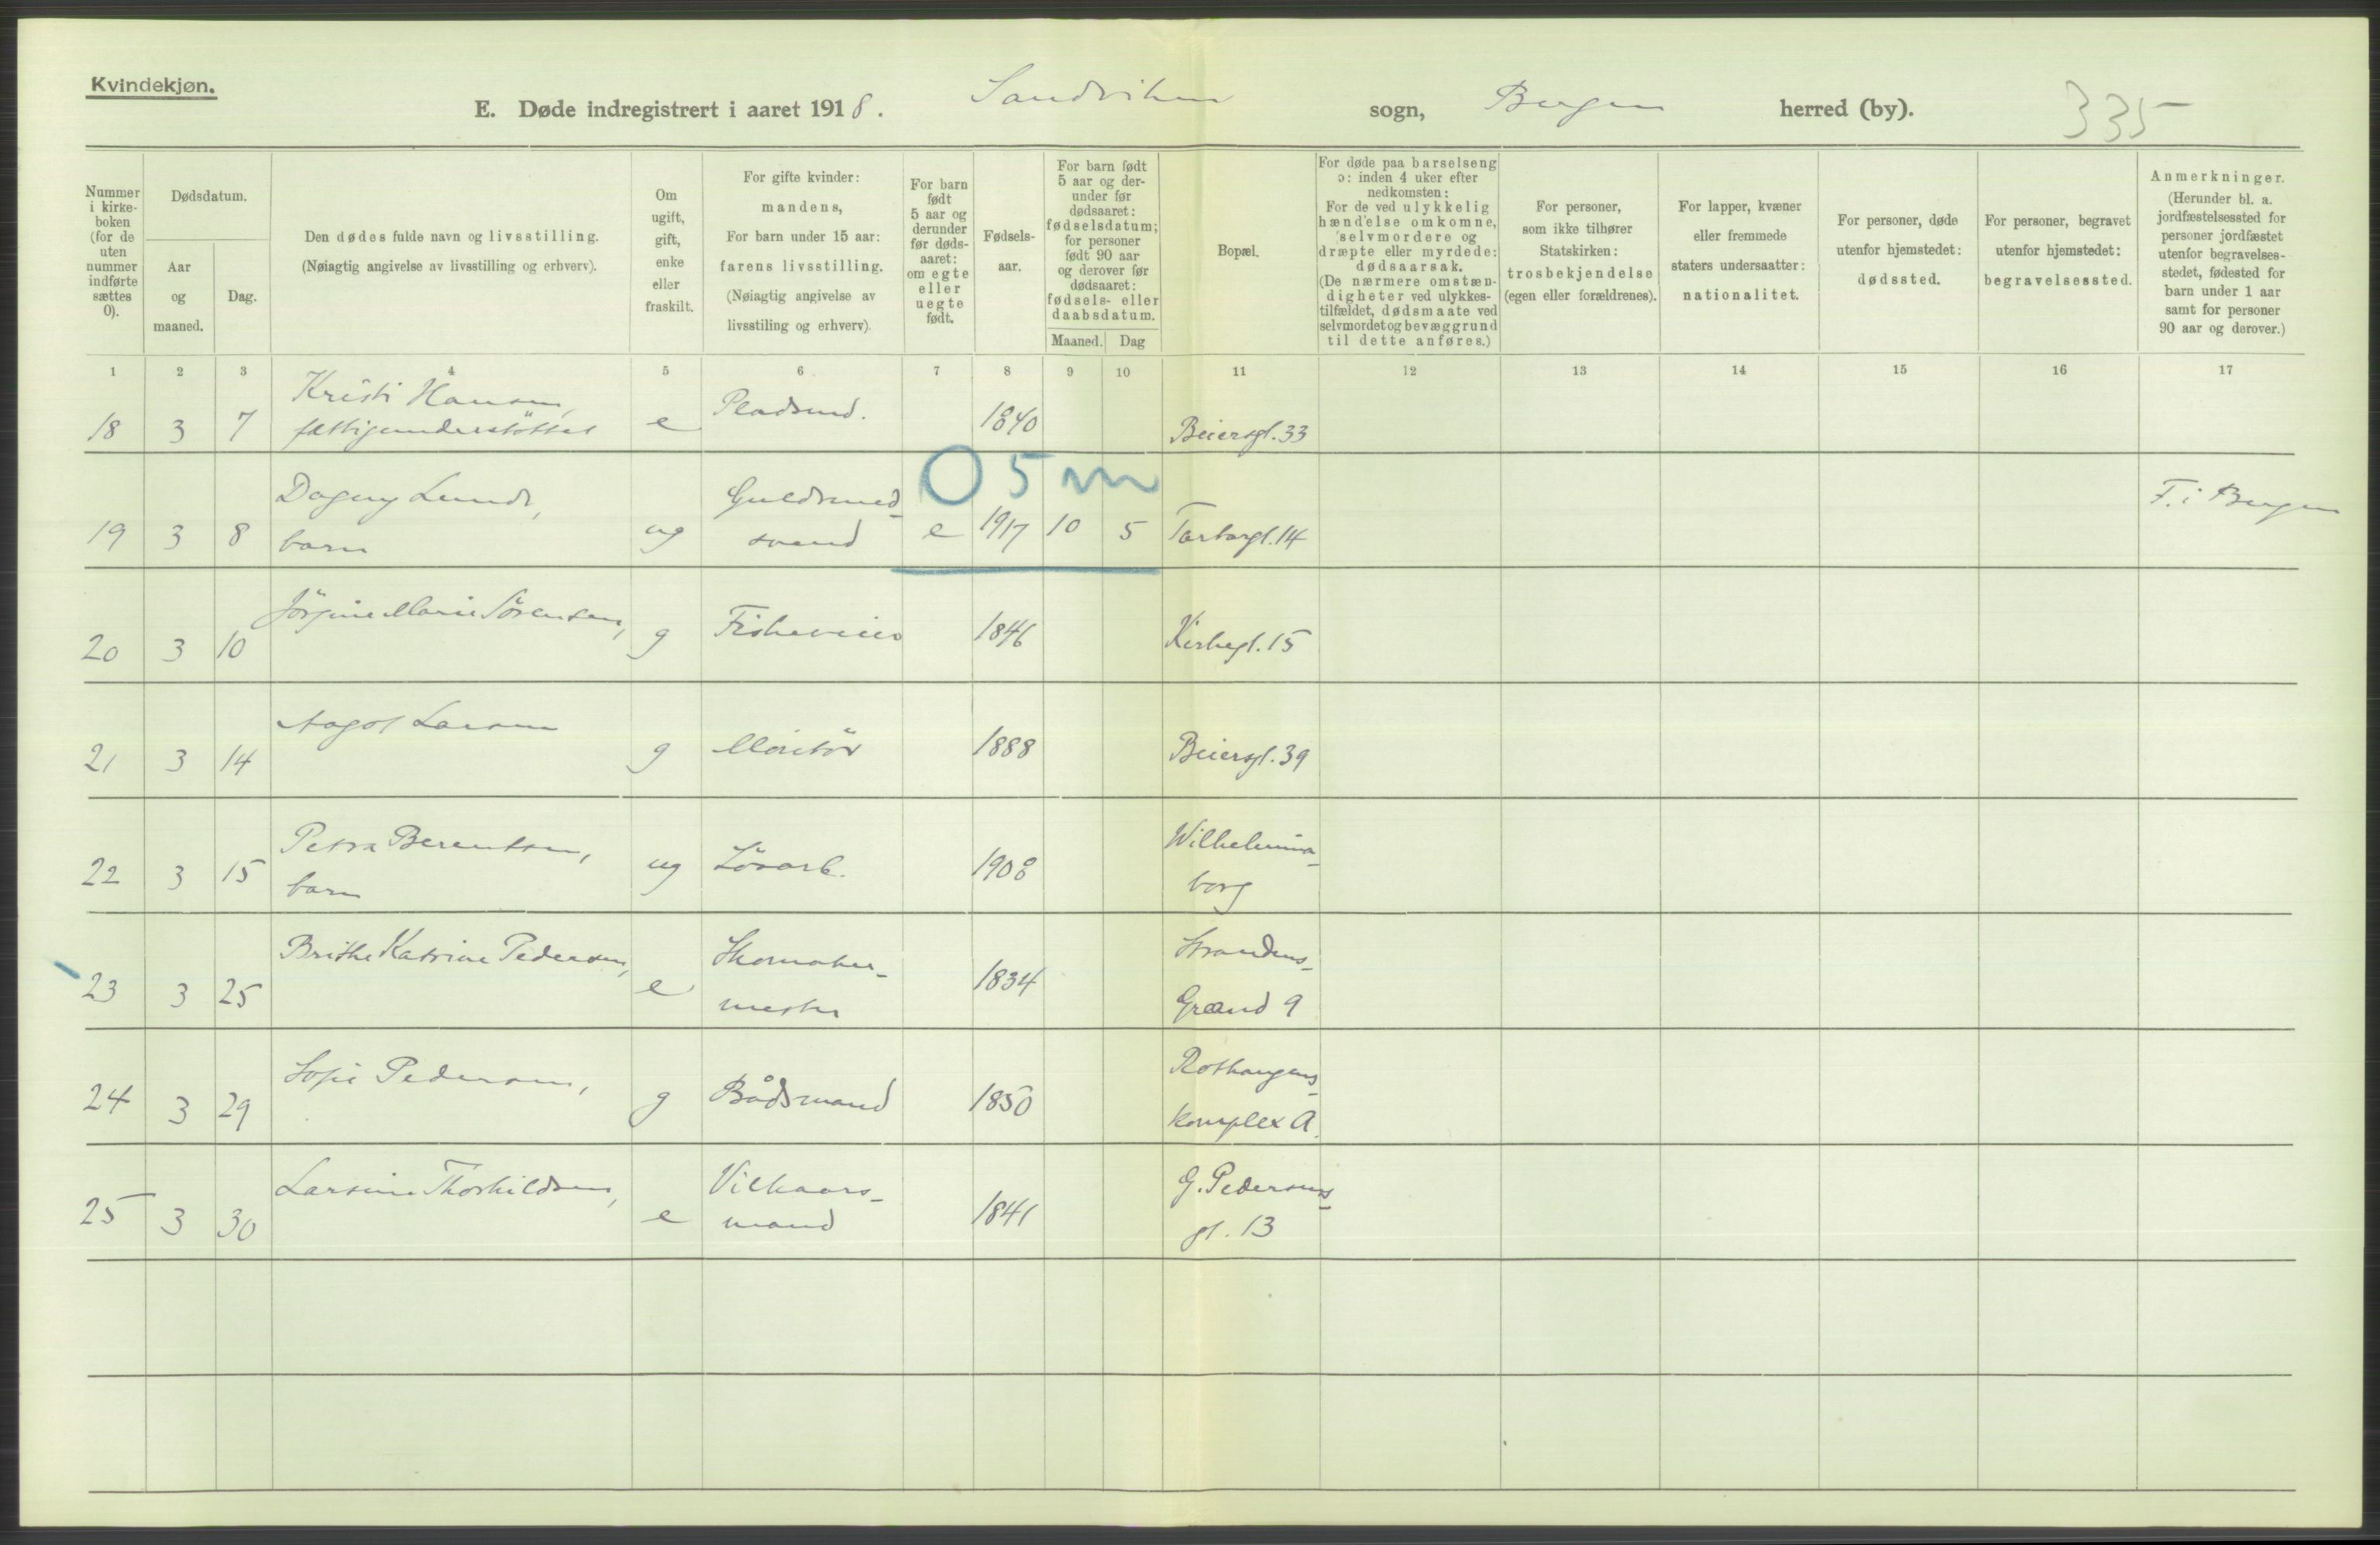 Kvindekjøn.
E. Døde indregistrert i aaret 1918. Sandviken sogn, Bergen herred (by). 335
Nummer i kirke- boken (for de uten nummer indførte sættes 0).
Dødsdatum.
Aar og maaned.
Dag.
Den dødes fulde navn og livsstilling.
(Nøiagtig angivelse av livsstilling og erhverv).
Om ugift, gift, enke eller fraskilt.
For gifte kvinder: mandens,
For barn under 15 aar: farens livsstilling.
(Nøiagtig angivelse av livsstiling og erhverv).
For barn født 5 aar og derunder før døds- aaret: om egte eller uegte født.
Fødsels- aar.
For barn født 5 aar og der- under før dødsaaret: fødselsdatum; for personer født 90 aar og derover før dødsaaret: fødsels- eller daabsdatum.
Maaned. Dag
Bopæl.
For døde paa barselseng ɔ: inden 4 uker efter nedkomsten:
For de ved ulykkelig hændelse omkomne, selvmordere og dræpte eller myrdede: dødsaarsak.
(De nærmere omstæn- digheter ved ulykkes- tilfældet, dødsmaate ved selvmordet og bevæggrund til dette anføres.)
For personer, som ikke tilhører Statskirken: trosbekjendelse (egen eller forældrenes).
For lapper, kvæner eller fremmede staters undersaatter: nationalitet.
For personer, døde utenfor hjemstedet: dødssted.
For personer, begravet utenfor hjemstedet: begravelsessted.
Anmerkninger.
(Herunder bl. a. jordfæstelsessted for personer jordfæstet utenfor begravelses- stedet, fødested for barn under 1 aar samt for personer 90 aar og derover.)
1 2 3 4 5 6 7 8 9 10 11 12 13 14 15 16 17
18 3 7 Kristi Hansen, fattigunderstöttet e Pladsmd. 1840 Beiersgt. 33
O 5 m
19 3 8 Dagny Lunde, barn ug Guldsmed- svend e 1917 10 5 Tartargt. 14 F. i Bergen
20 3 10 Jörgine Marie Sörensen, g Fiskeveier 1846 Kirkegt. 15
21 3 14 Aagot Larsen g Montör 1888 Beiersgt. 39
22 3 15 Petra Berentsen, barn ug Lösarb. 1908 Wilhelmina- borg
23 3 25 Brithe Katrine Pedersen, e Skomaker- mester 1834 Strandens- Grænd 9
24 3 29 Sofie Pedersen, g Bådsmand 1850 Rothaugens- komplex A.
25 3 30 Larsine Thorkildsen, e Vilkaars- mand 1841 G. Pedersens- gt. 13